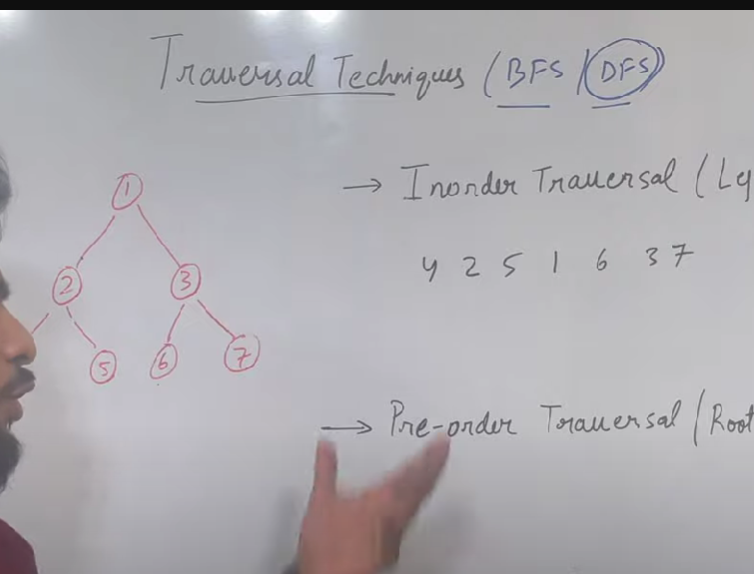 Traversal Techniques (BFS / DFS)
→ Inorder Traversal (Le
4 2 5 1 6 3 7
→ Pre-order Traversal (Root
1
2
3
5
6
7